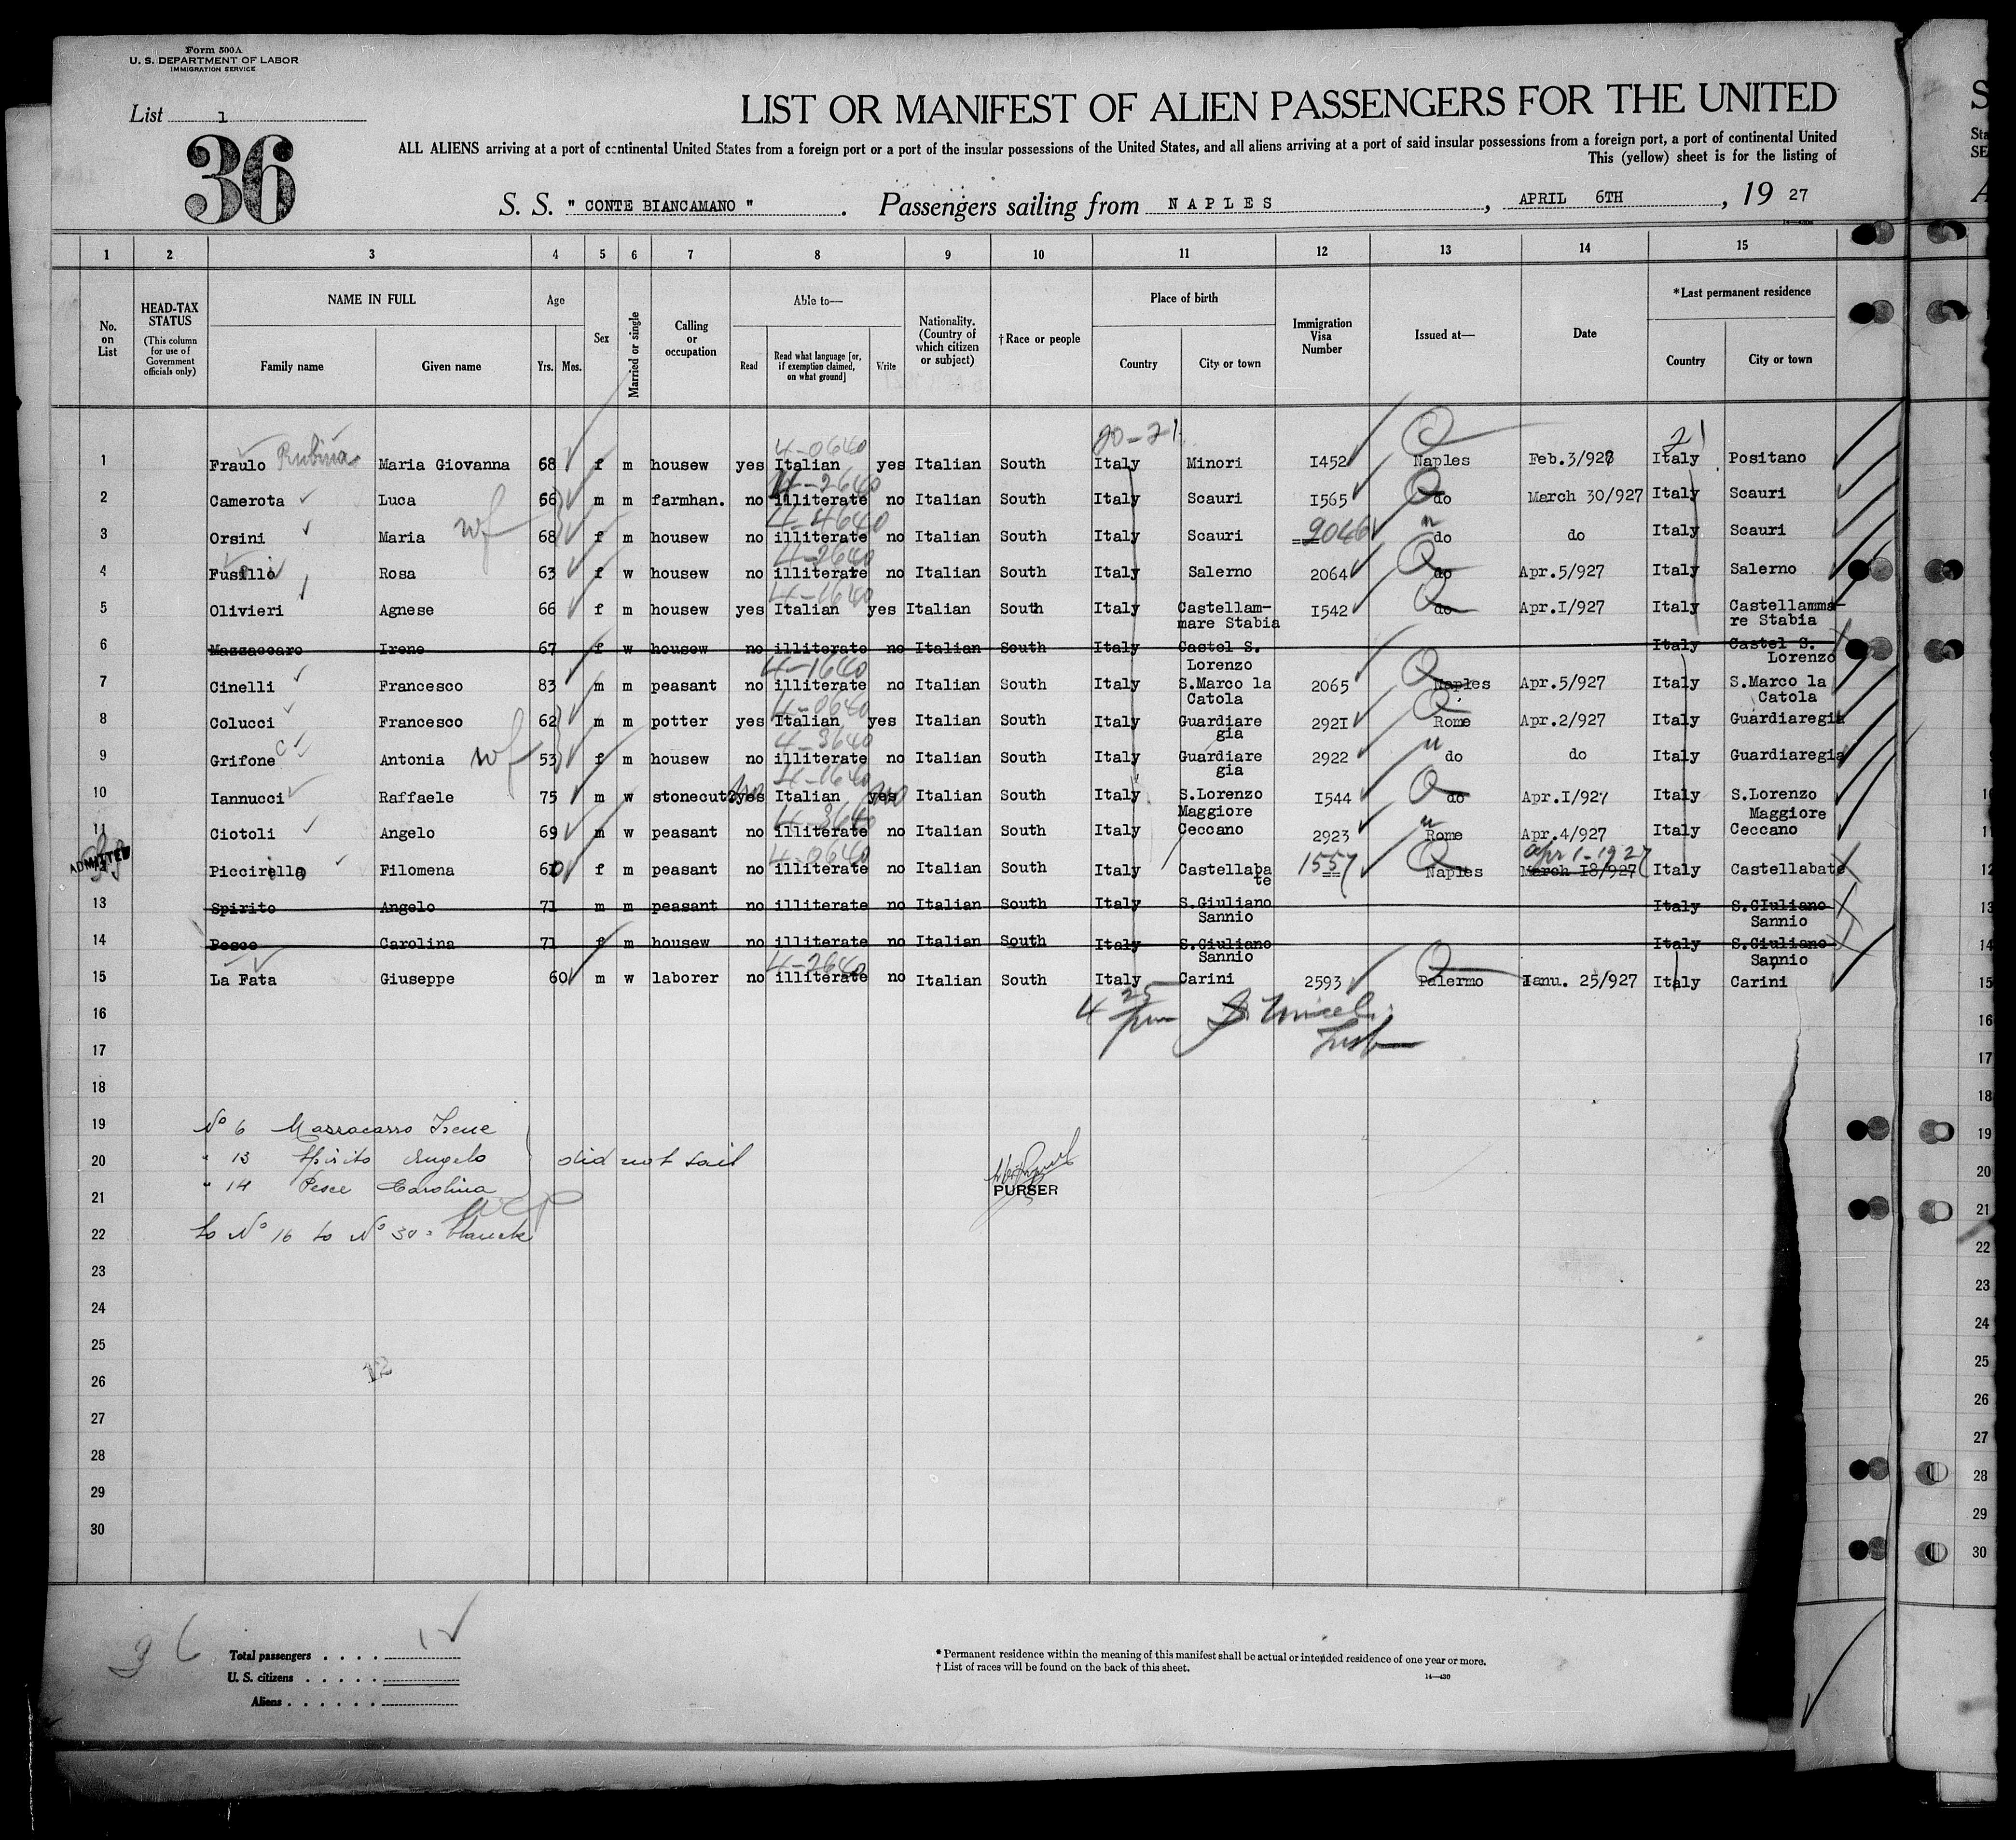 Form 500A
U. S. DEPARTMENT OF LABOR
IMMIGRATION SERVICE
List 1
36
LIST OR MANIFEST OF ALIEN PASSENGERS FOR THE UNITED
ALL ALIENS arriving at a port of continental United States from a foreign port or a port of the insular possessions of the United States, and all aliens arriving at a port of said insular possessions from a foreign port, a port of continental United
This (yellow) sheet is for the listing of
S. S. " CONTE BIANCAMANO " . Passengers sailing from NAPLES , APRIL 6TH , 19 27
1 2 3 4 5 6 7 8 9 10 11 12 13 14 15
No. on List
HEAD-TAX STATUS (This column for use of Government officials only)
NAME IN FULL Family name Given name
Age Yrs. Mos.
Sex
Married or single
Calling or occupation
Able to— Read Read what language [or, if exemption claimed, on what ground] Write
Nationality. (Country of which citizen or subject)
†Race or people
Place of birth Country City or town
Immigration Visa Number
Issued at—
Date
*Last permanent residence Country City or town
20-21 21
4-0640
1 Fraulo Rubina Maria Giovanna 68 f m housew yes Italian yes Italian South Italy Minori 1452 Naples Feb.3/927 Italy Positano
4-2640
2 Camerota Luca 66 m m farmhan. no illiterate no Italian South Italy Scauri 1565 do March 30/927 Italy Scauri
4-4640
3 Orsini Maria wf 68 f m housew no illiterate no Italian South Italy Scauri 2046 do do Italy Scauri
4-2640
4 Fusillo Rosa 63 f w housew no illiterate no Italian South Italy Salerno 2064 do Apr.5/927 Italy Salerno
4-1640
5 Olivieri Agnese 66 f m housew yes Italian yes Italian South Italy Castellammare Stabia 1542 do Apr.1/927 Italy Castellammare Stabia
6 Mazzaccaro Irene 67 f w housew no illiterate no Italian South Italy Castel S. Lorenzo Italy Castel S. Lorenzo
4-1640
7 Cinelli Francesco 83 m m peasant no illiterate no Italian South Italy S.Marco la Catola 2065 Naples Apr.5/927 Italy S.Marco la Catola
4-0640
8 Colucci Francesco 62 m m potter yes Italian yes Italian South Italy Guardiaregia 2921 Rome Apr.2/927 Italy Guardiaregia
4-3640
9 Grifone Antonia wf 53 f m housew no illiterate no Italian South Italy Guardiaregia 2922 do do Italy Guardiaregia
4-1640
10 Iannucci Raffaele 75 m w stonecut. yes no Italian yes no Italian South Italy S.Lorenzo Maggiore 1544 do Apr.1/927 Italy S.Lorenzo Maggiore
4-3640
11 Ciotoli Angelo 69 m w peasant no illiterate no Italian South Italy Ceccano 2923 Rome Apr.4/927 Italy Ceccano
ADMITTED
4-0640 Apr 1-1927
12 Piccirello Filomena 60 f m peasant no illiterate no Italian South Italy Castellabate 1557 Naples March 18/927 Italy Castellabate
13 Spirito Angelo 71 m m peasant no illiterate no Italian South Italy S.Giuliano Sannio Italy S.GIuliano Sannio
14 Pesce Carolina 71 f m housew no illiterate no Italian South Italy S.Giuliano Sannio Italy S.Giuliano Sannio
4-2640
15 La Fata Giuseppe 60 m w laborer no illiterate no Italian South Italy Carini 2593 Palermo Ianu. 25/927 Italy Carini
16
17
18
19 No 6 Massacarro Irene
20 " 13 Spirito Angelo did not sail
21 " 14 Pesce Carolina PURSER
22 to No 16 to No 30 = blanck
23
24
25
26 12
27
28
29
30
36
Total passengers . . . . 12
U. S. citizens . . . . .
Aliens . . . . . .
* Permanent residence within the meaning of this manifest shall be actual or intended residence of one year or more.
† List of races will be found on the back of this sheet.
14—430